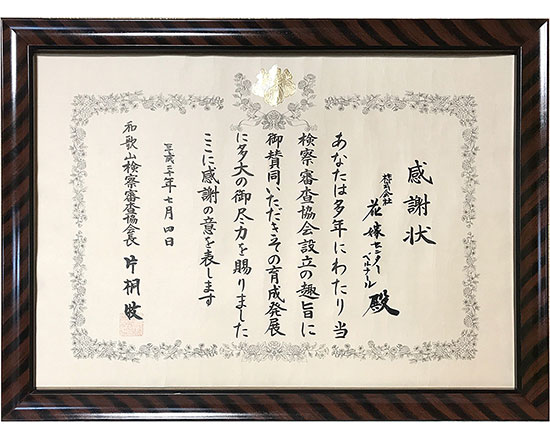 感謝状
株式会社
花嫁センター
ベルナール 殿
あなたは多年にわたり当
検察審査協会設立の趣旨に
御賛同いただきその育成発展
に多大の御尽力を賜りました
ここに感謝の意を表します
平成三十年七月四日
和歌山検察審査協会長 片桐